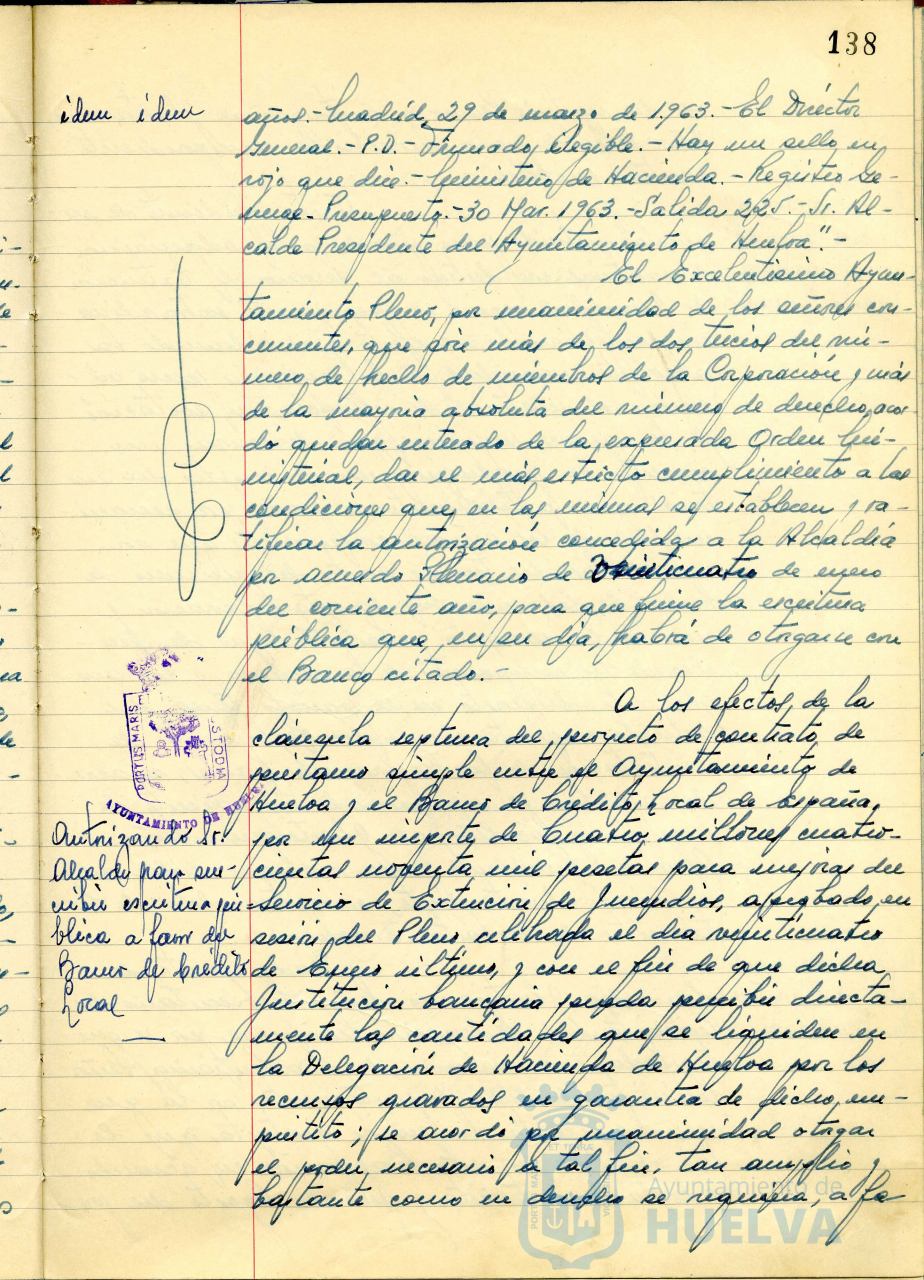 138
idem idem
años.- Madrid, 29 de marzo de 1.963.- El Director
General.- P.D.- Firmado, ilegible.- Hay un sello en
rojo que dice.- Ministerio de Hacienda.- Registro Ge-
neral.- Presupuesto.- 30 Mar. 1963.- Salida 225.- Sr. Al-
calde Presidente del Ayuntamiento de Huelva".-
El Excelentísimo Ayun-
tamiento Pleno, por unanimidad de los señores con-
currentes, que son más de los dos tercios del nú-
mero de hecho de miembros de la Corporación y más
de la mayoria absoluta del número de derecho, acor-
dó quedar enterado de la expresada Orden Mi-
nisterial, dar el más estricto cumplimiento a las
condiciones que en las mismas se establecen y ra-
tificar la autorización concedida a la Alcaldía
por acuerdo Plenario de Veinticuatro de enero
del corriente año, para que firme la escritura
pública que, en su día, habrá de otorgarse con
el Banco citado.-
PORTUS MARIS
CUSTODIA
AYUNTAMIENTO DE HUELVA
Autorizando Sr.
Alcalde para sus-
cribir escritura pú-
blica a favor del
Banco de Crédito
Local
A los efectos, de la
cláusula septima del proyecto de contrato de
préstamo simple entre el Ayuntamiento de
Huelva y el Banco de Crédito Local de España,
por un importe de Cuatro millones cuatro-
cientas noventa mil pesetas para mejoras del
Servicio de Extinción de Incendios, aprobado en
sesión del Pleno celebrada el día veinticuatro
de Enero último, y con el fin de que dicha
Institución bancaria pueda percibir directa-
mente las cantidades que se liquiden en
la Delegación de Hacienda de Huelva por los
recursos gravados en garantía de dicho em-
préstito; se acordó por unanimidad otorgar
el poder necesario a tal fin, tan amplio y
bastante como en derecho se requiera, a fa
Ayuntamiento de
HUELVA